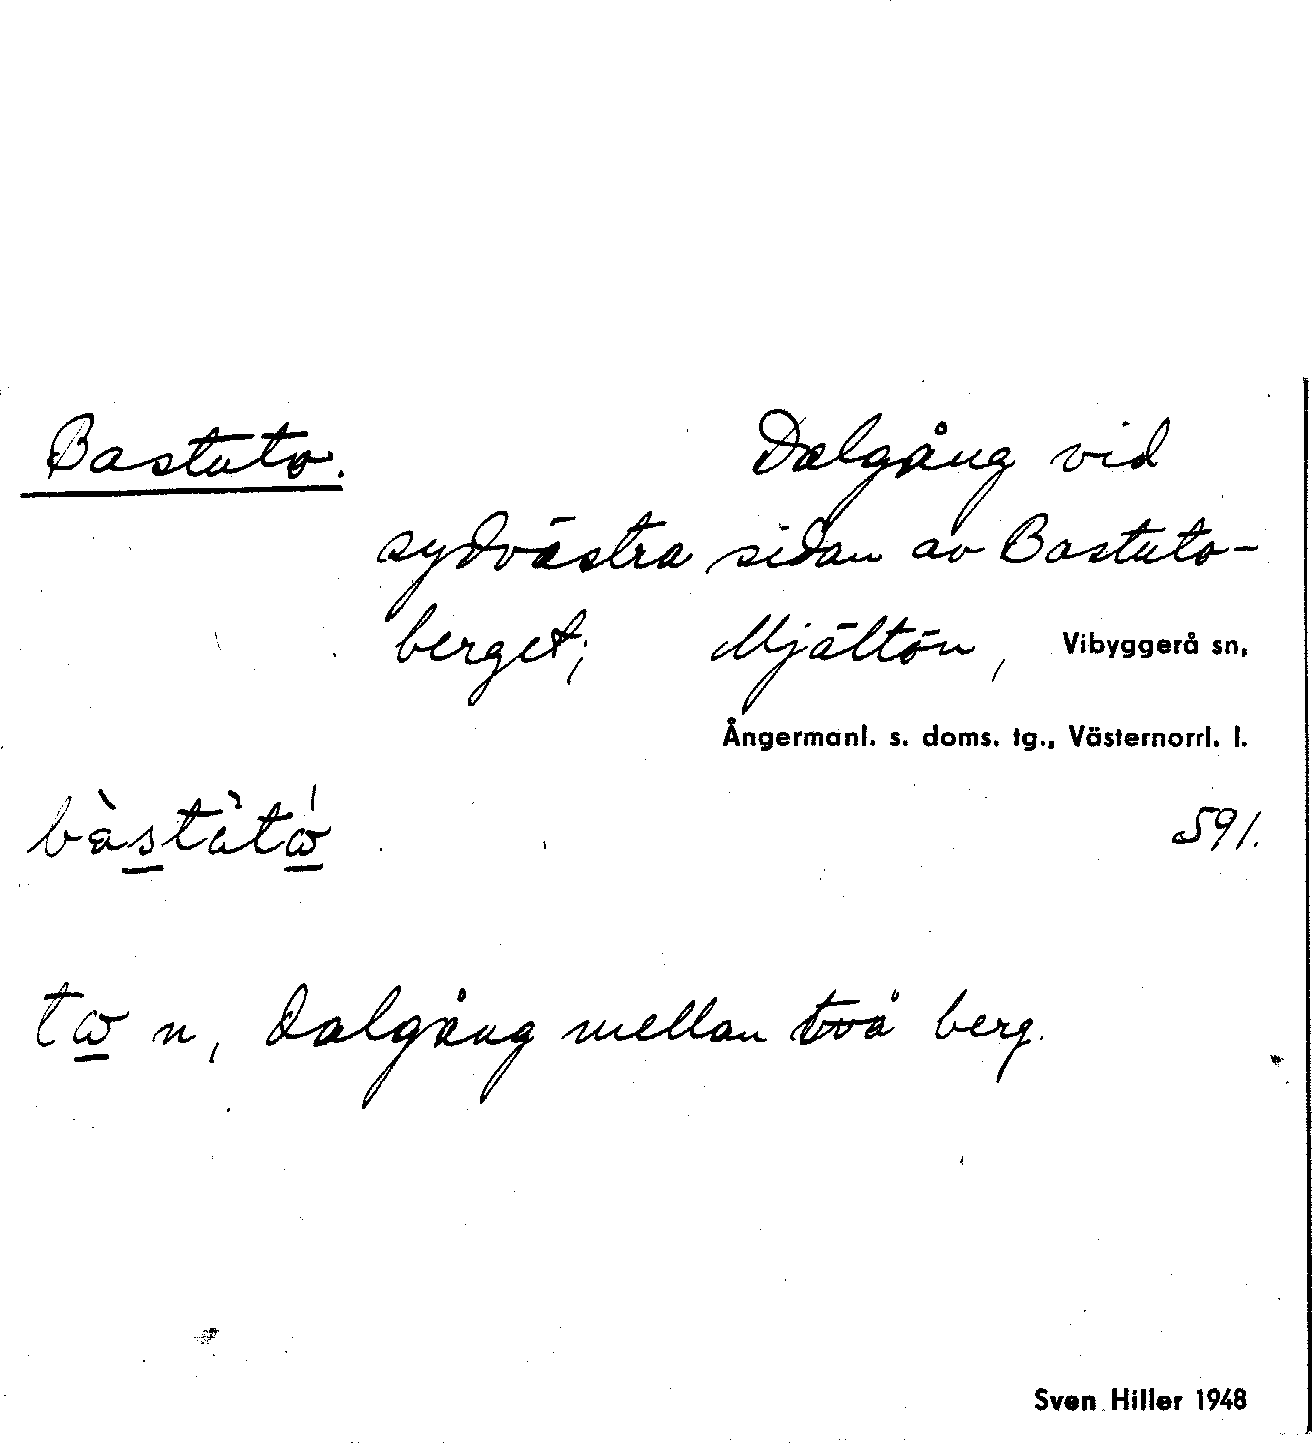 Bastuto. Dalgång vid
sydvästra sidan av Bastuto-
berget; Mjältön, Vibyggerå sn,
Ångermanl. s. doms. tg., Västernorrl. l.
bàstùtω 591.
tω n, dalgång mellan två berg.
Sven Hiller 1948